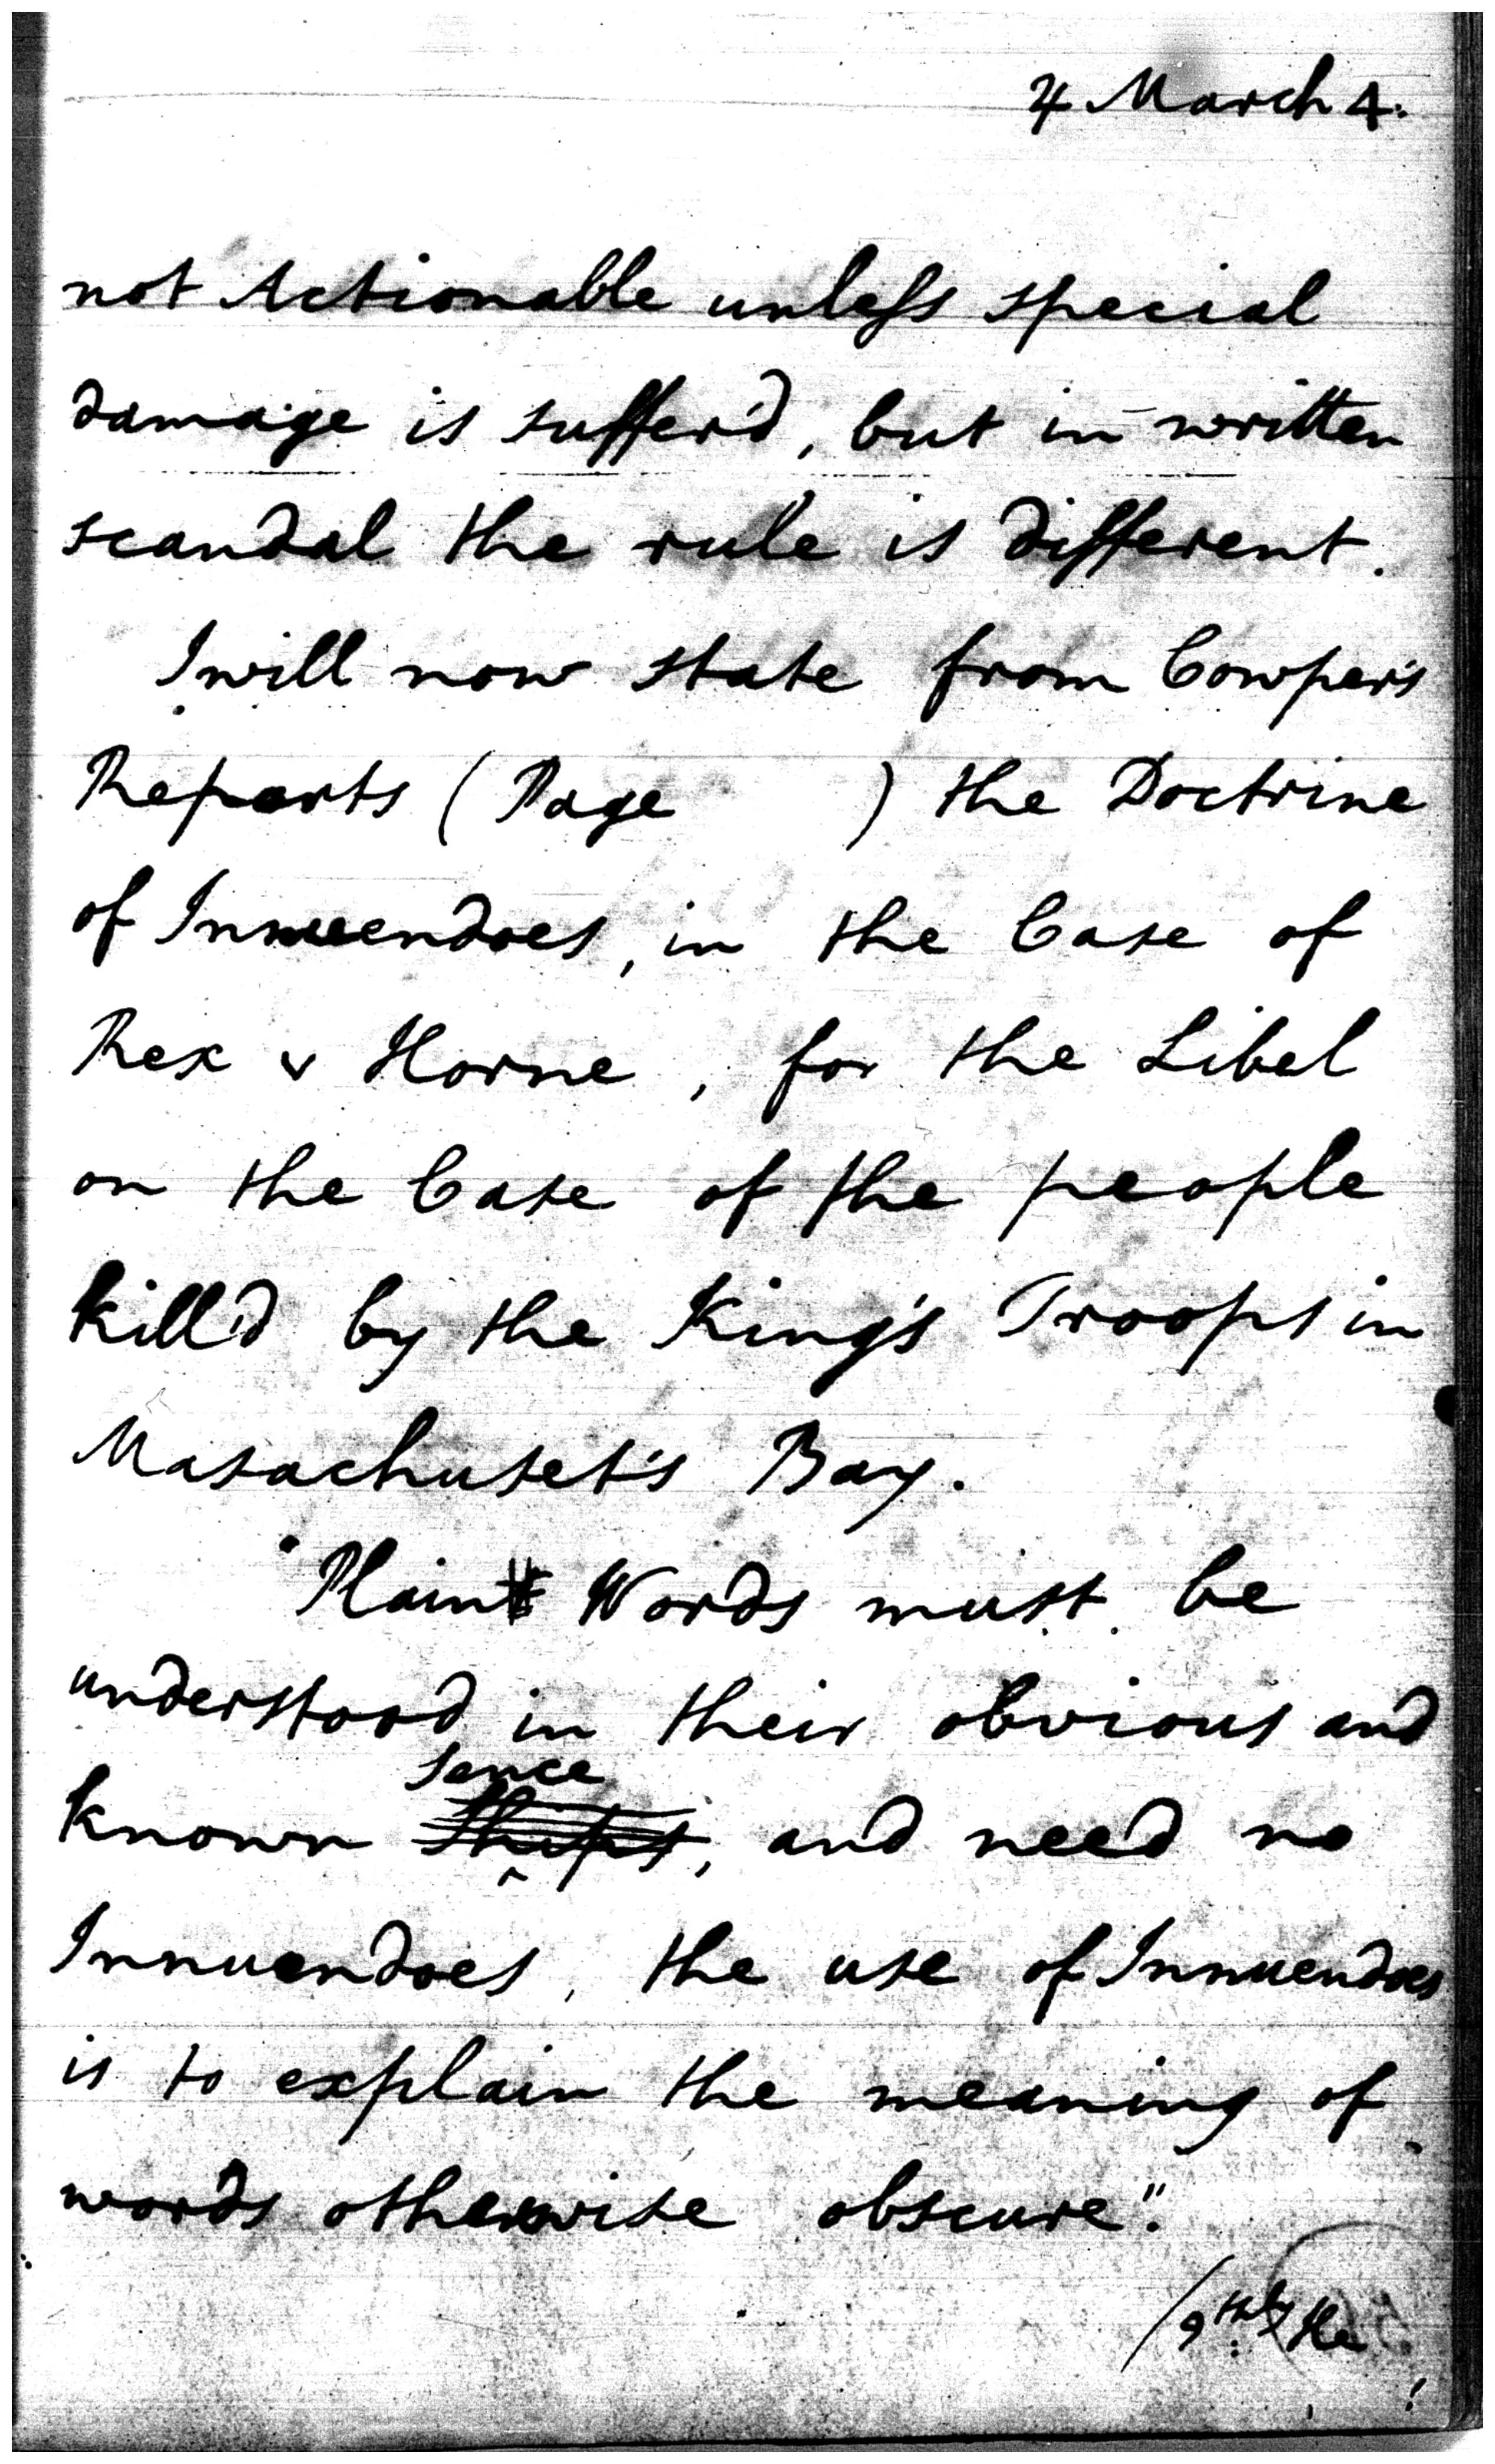 4 March 4.
not Actionable unless special
damage is suffer'd, but in written
scandal the rule is different.
I will now state from Cowper's
Reports (Page ) the Doctrine
of Innuendoes, in the Case of
Rex v Horne, for the Libel
on the Case of the people
kill'd by the King's Troops in
Masachuset's Bay.
"Plain Words must be
understood in their obvious and
sence
known , and need no
Innuendoes, the use of Innuendoes
is to explain the meaning of
words otherwise obscure".
/9thly the